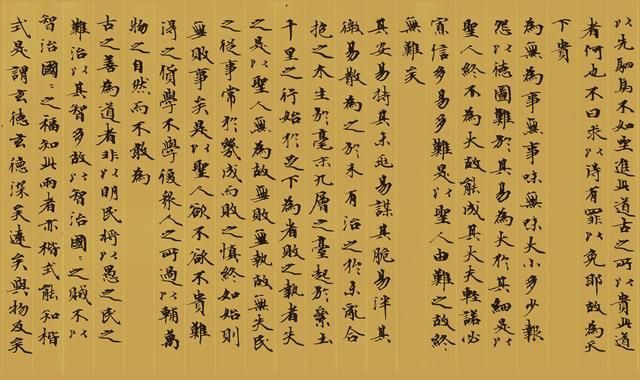 以先駟馬不如坐進此道古之所以貴此道
者何也不曰求以得有罪以免耶故為天
下貴
為無為事無事味無味大小多少報
怨以德圖難於其易為大於其細是以
聖人終不為大故能成其大夫輕諾必
寡信多易多難是以聖人由難之故終
無難矣
其安易持其未兆易謀其脆易泮其
微易散為之於未有治之於未亂合
抱之木生於毫末九層之臺起於累土
千里之行始於足下為者敗之執者失
之是以聖人無為故無敗無執故無失民
之從事常於幾成而敗之慎終如始則
無敗事矣是以聖人欲不欲不貴難
得之貨學不學復眾人之所過以輔萬
物之自然而不敢為
古之善為道者非以明民將以愚之民之
難治以其智多故以智治國〻之賊不以
智治國〻之福知此兩者亦楷式能知楷
式是謂玄德玄德深矣遠矣與物反矣